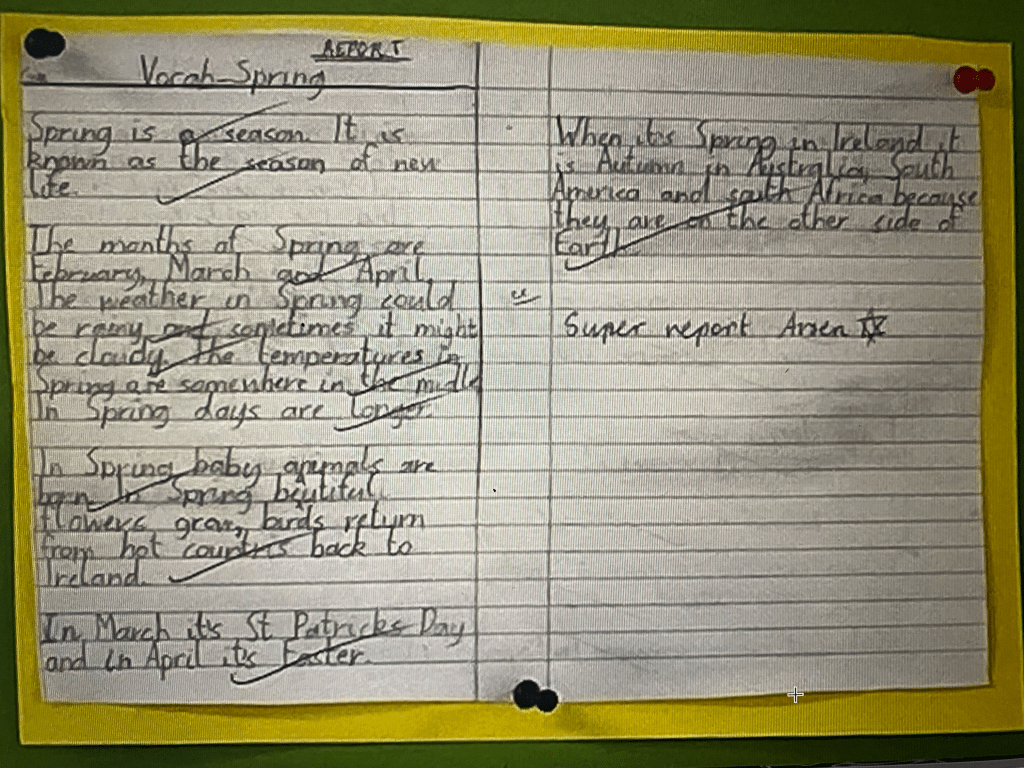 REPORT
Vocab Spring
Spring is a season. It is
known as the season of new
life.
The months of Spring are
February, March and April.
The weather in Spring could
be rainy and sometimes it might
be cloudy. The temperatures in
Spring are somewhere in the midle
In Spring days are longer.
In Spring baby animals are
born in Spring beutiful
flowers grow, birds return
from hot countris back to
Ireland.
In March it's St Patricks Day
and in April it's Easter.
When it's Spring in Ireland it
is Autumn in Australia, South
America and south Africa because
they are on the other side of
Earth
Super report Arsen